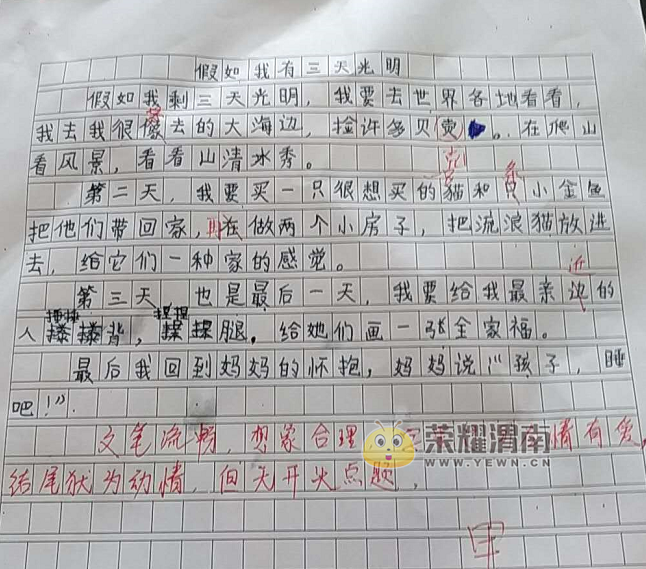 假如我有三天光明
假如我剩三天光明，我要去世界各地看看，
我去我很喜去的大海边，捡许多贝壳。在爬山
看风景，看看山清水秀。
第二天，我要买一只很想买的貓和条小金鱼
把他们带回家，再在做两个小房子，把流浪猫放进
去，给它们一种家的感觉。
第三天 也是最后一天，我要给我最亲近的
人捶捶背，捏捏腿。给她们画一张全家福。
最后我回到妈妈的怀抱，妈妈说："孩子，睡
吧！"
文笔流畅，想象合理 情有爱，
结尾犹为动情，但无开头点题，
荣耀渭南
WWW.YEWN.CN